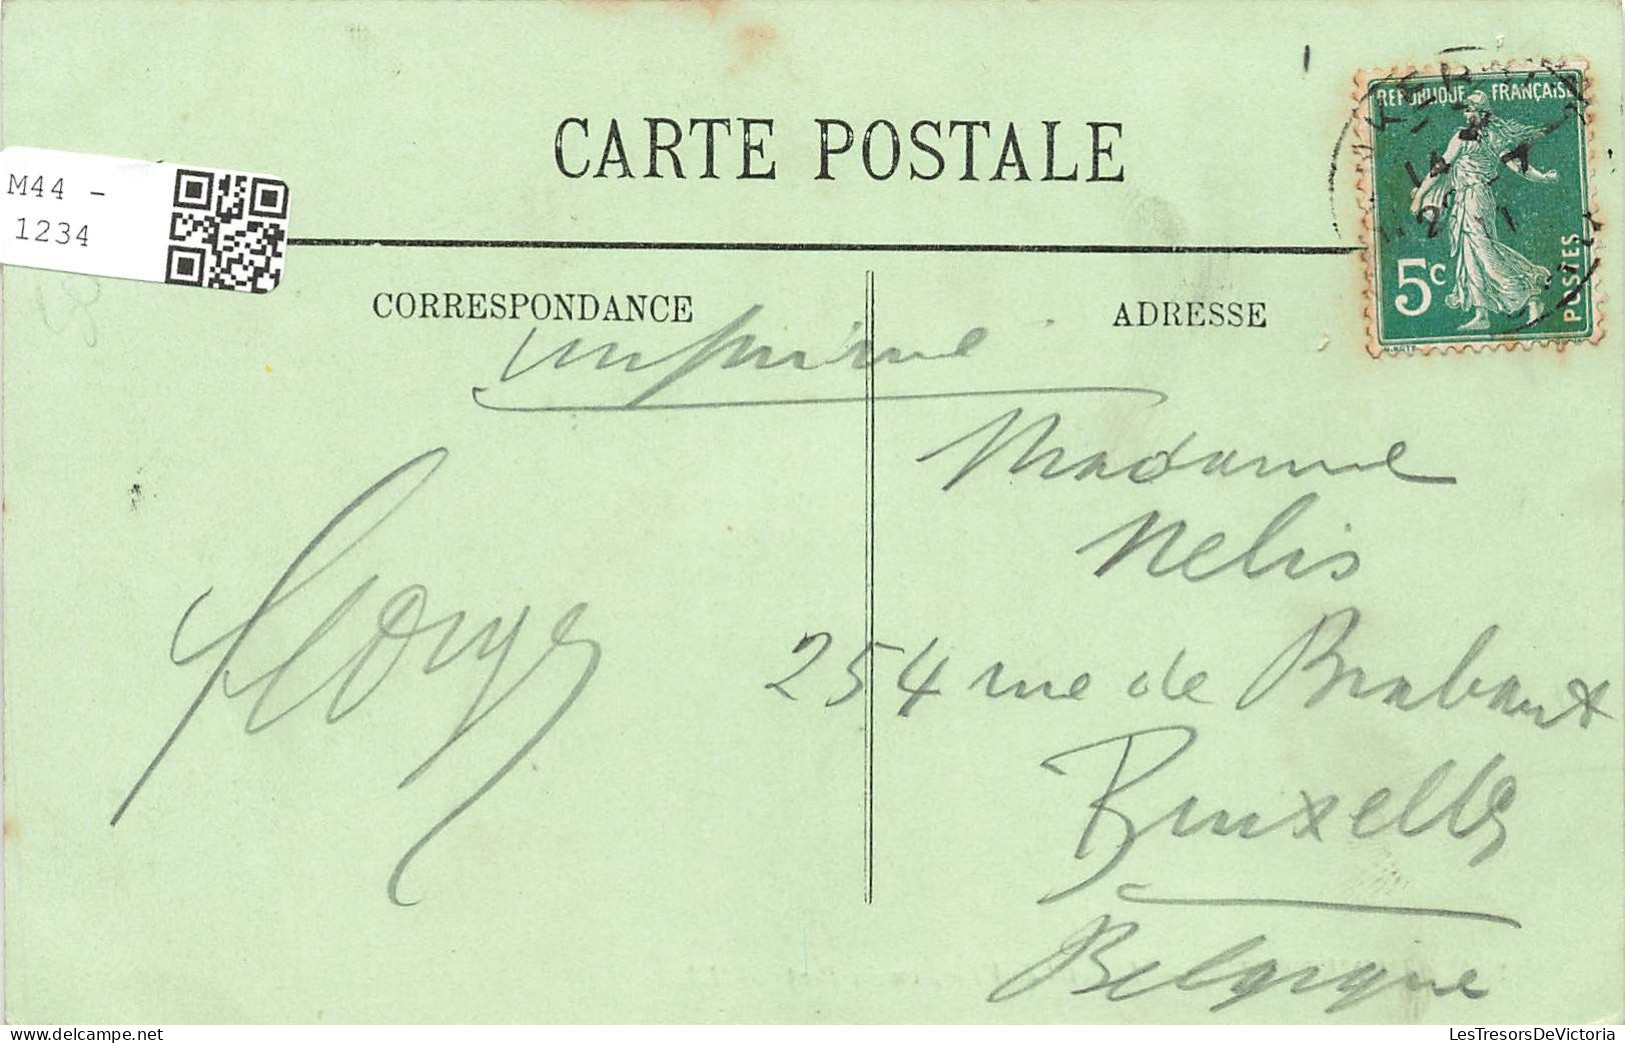 CARTE POSTALE
M44 -
1234
REPUBLIQUE FRANÇAISE
14
5c
POSTES
CORRESPONDANCE
ADRESSE
imprimé
Madame
Nelis
254 rue de Brabant
Bruxelles
Belgique
Georges
LesTresorsDeVictoria.com